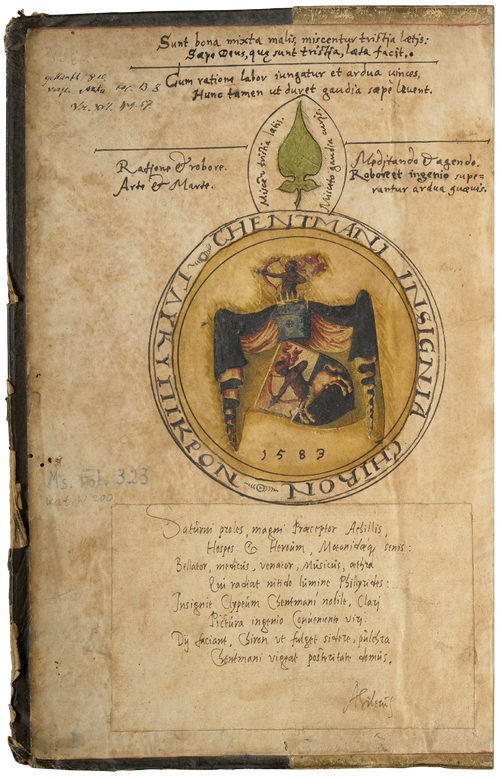 Sunt bona mixta malis, miscentur tristia lætis:
Sæpe Deus, quę sunt tristia, læta facit.
Cum ratione labor iungatur et ardua vinces,
Hunc tamen ut duret gaudia sæpe levent.
Miscēt tristia lætis.
Misceto gaudia curis.
Ratione & robore.
Arte & Marte.
Meditando & agendo.
Robore et ingenio supe=
rantur ardua quævis.
CHENTMANI INSIGNIA CHIRON
ΓΛΥΚΥΠΙΚΡΟΝ
1583
Ms. Ff. 323
Kat. W 200
Saturni proles, magni Præceptor Achillis,
Hospes & Heroum, senis:
Bellator, medicus, venator, Musicus, æthra
Qui radiat nitido lumine Philyrides:
Insignit Clypeum Chentmani nobile, Clari
Pictura ingenio Conveniente viri.
Dij faciant, Chiron ut fulget sidere, pulchra
Chentmani vigeat posteritate domus.